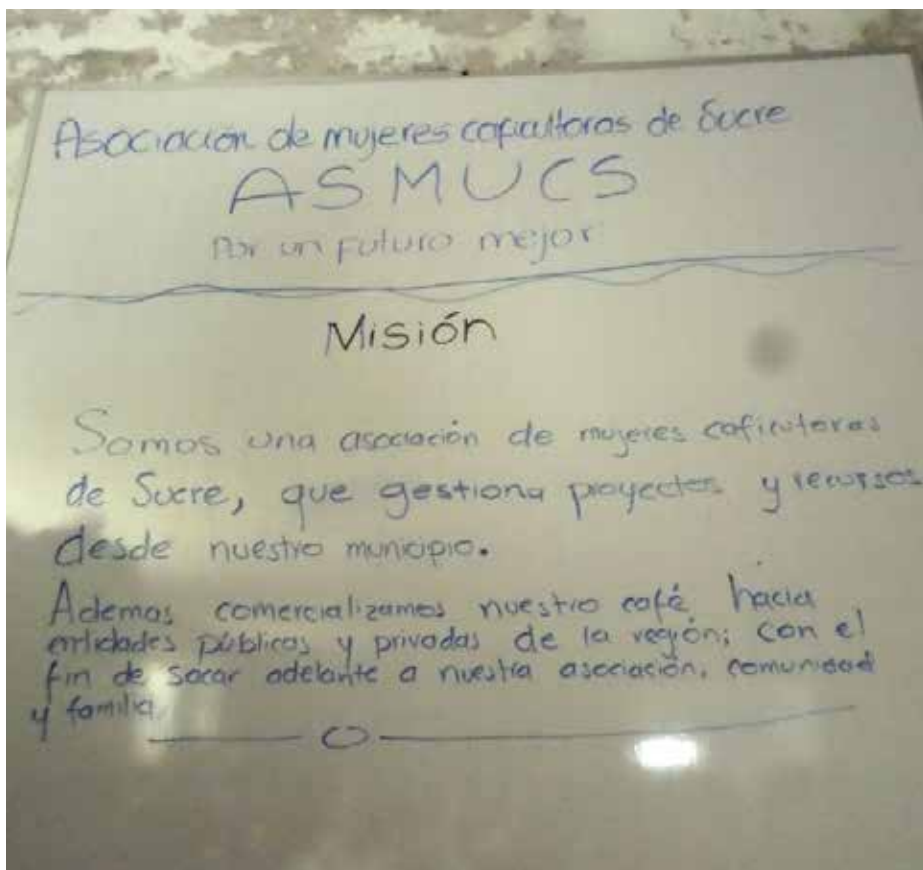 Asociación de mujeres caficultoras de Sucre
ASMUCS
Por un futuro mejor
Misión
Somos una asociación de mujeres caficutoras
de Sucre, que gestiona proyectos y recursos
desde nuestro municipio.
Ademas comercializamos nuestro café hacia
entidades públicas y privadas de la región; con el
fin de sacar adelante a nuestra asociación, comunidad
y familia.